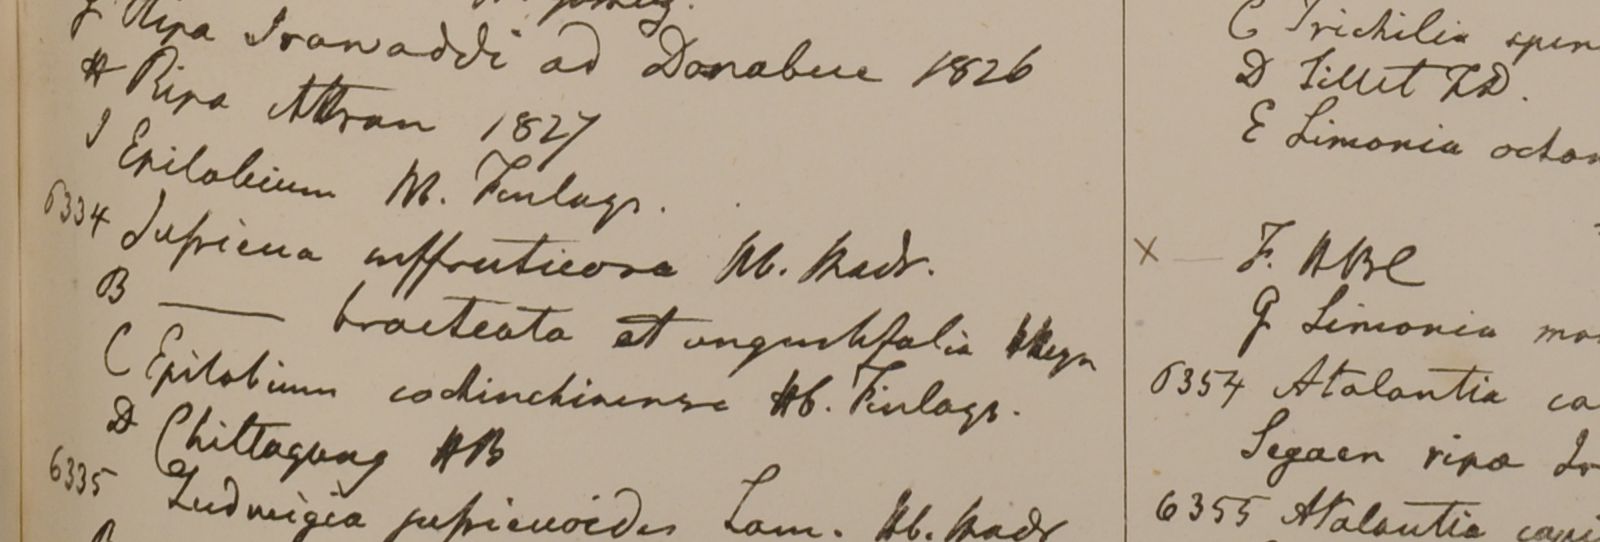 G Ripa Irawaddi ad Donabue 1826
H Ripa Attran 1827
I Epilobium Hb. Finlays.
6334 Jussieua suffruticosa Hb. Madr.
B ——— bracteata et angustifolia Heyn
C Epilobium cochinchinense Hb. Finlays.
D Chittagong HB
6335 Ludwigia jussieuoides Lam. Hb. Madr
B
C Trichilia spin
D Sillet FD.
E Limonia octan
X — F. HBC
G Limonia mon
6354 Atalantia ca
Segaen ripa Ir
6355 Atalantia capi